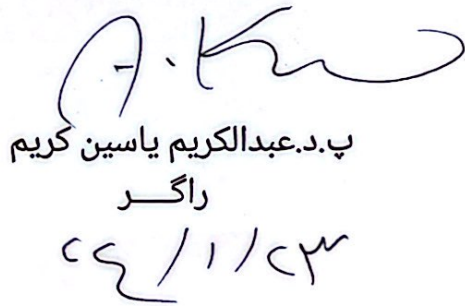 A. K
پ.د.عبدالكريم ياسين كريم
راگـــر
٢٤/١/٢٣